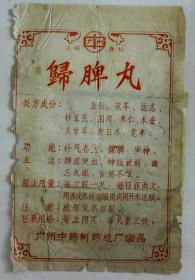 注册 商标
歸脾丸
处方成份： 当归、茯苓、远志、
炒黄芪、困肉、枣仁、木香、
炙甘草、炒白术、党参
功能： 补气养血、健脾、安神
主治： 脾虚便血、神经衰弱、健
忘失眠、食慾不振
服法用量：每次服一丸，每日服两次，
用酒或米汤送服或用开水送服。
注意：感冒发热勿服。
包装规格：每盒四丸，每丸重三钱。
广州中药制药总厂出品